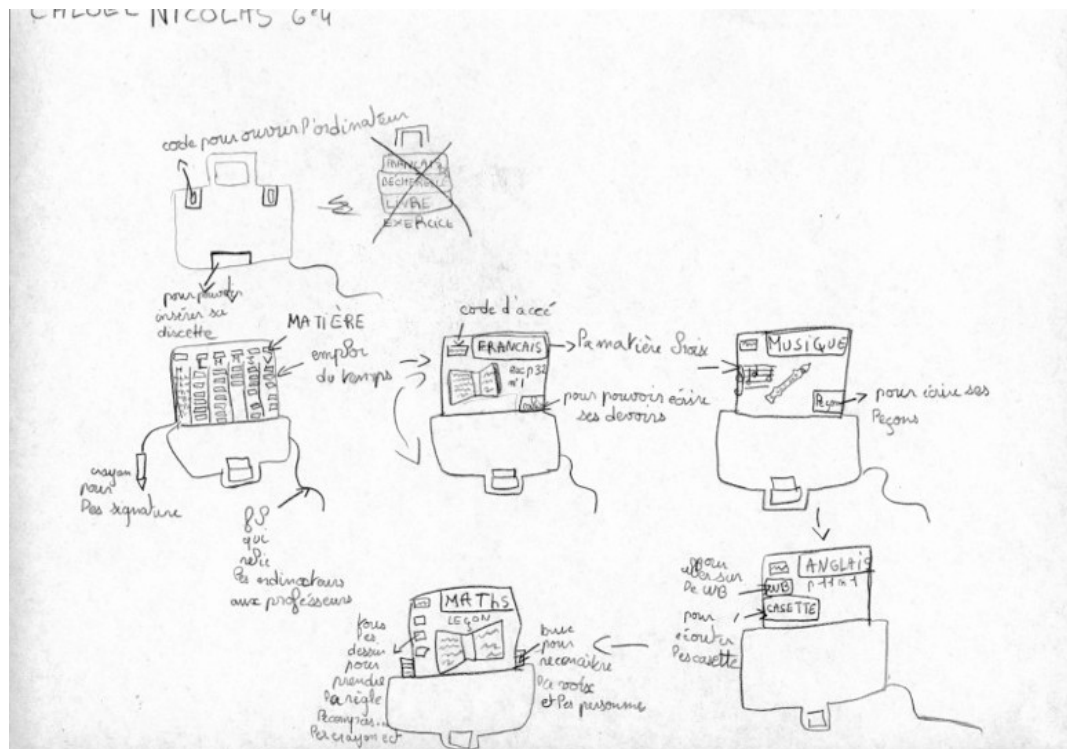 NICOLAS 6°4
code pour ouvrir l'ordinateur
FRANÇAIS
RECHERCHE
LIVRE
EXERCICE
pour pouvoir
insérer sa
discette
MATIÈRE
emploi
du temps
crayon
pour
les signature
fil
qui
relie
les ordinateurs
aux professeurs
code d'accé
FRANCAIS
la matière choisie
Exc p 32
n°1
pour pouvoir écrire
ses devoirs
MUSIQUE
leçon
pour écrire ses
leçons
ANGLAIS
p 11 n 1
pour
aller sur
le WB
WB
CASETTE
pour
écouter
les casette
MAThS
LEÇON
tous
les
dessin
pour
prendre
la règle
le compas...
les crayon ect
pour
reconaître
la voix
et les personne